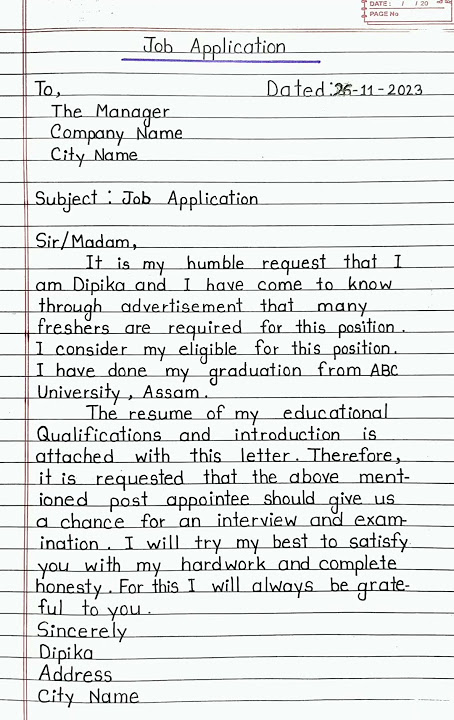 DATE: / / 20
PAGE No
Job Application
To, Dated:25-11-2023
The Manager
Company Name
City Name
Subject : Job Application
Sir/Madam,
It is my humble request that I
am Dipika and I have come to know
through advertisement that many
freshers are required for this position.
I consider my eligible for this position.
I have done my graduation from ABC
University, Assam.
The resume of my educational
Qualifications and introduction is
attached with this letter. Therefore,
it is requested that the above ment-
ioned post appointee should give us
a chance for an interview and exam-
ination. I will try my best to satisfy
you with my hardwork and complete
honesty. For this I will always be grate-
ful to you.
Sincerely
Dipika
Address
City Name